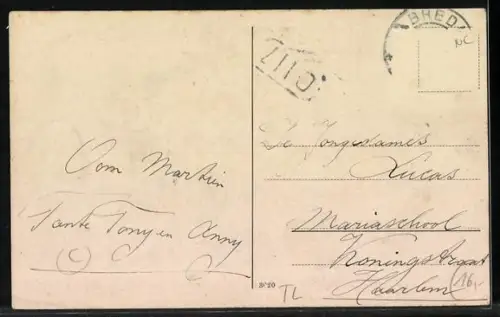 BRED
NC
Oom Martien
Tante Tony en Anny
De Jongedames
Lucas
Mariaschool
Koningstraat
Haarlem
16,-
TL